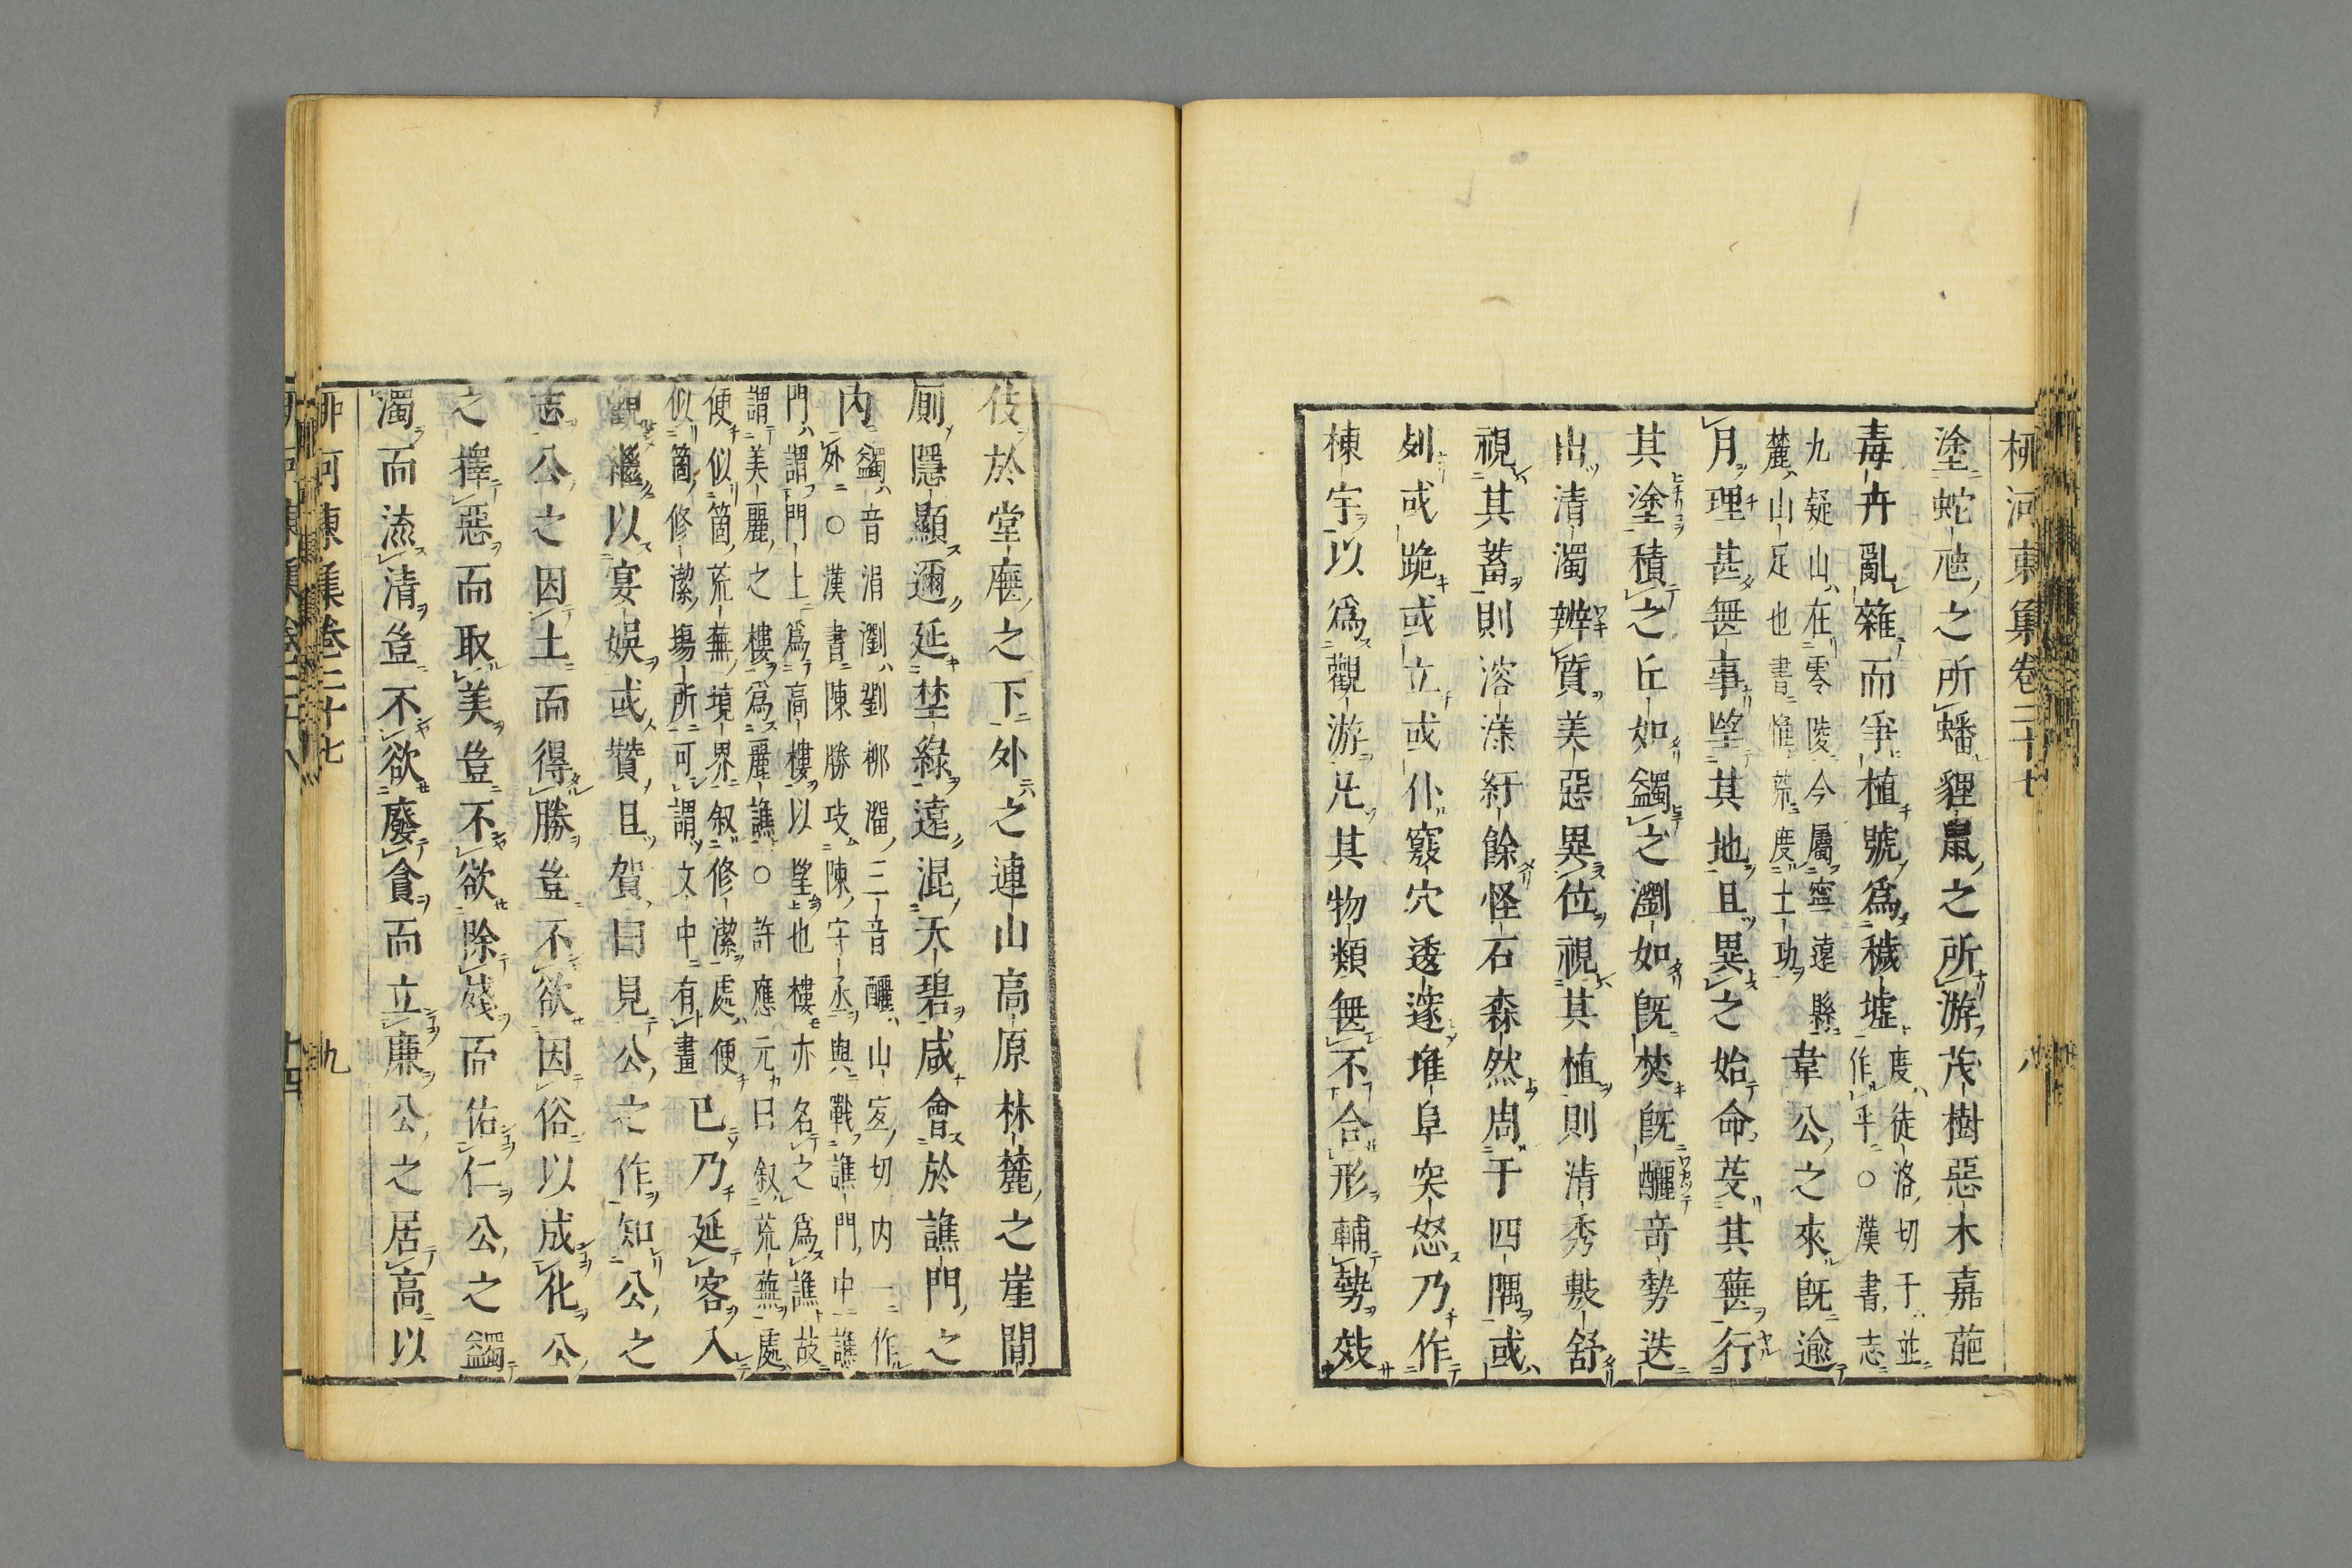 柳河東集卷二十七 八
塗蛇虺之所蟠貍鼠之所游茂樹惡木嘉葩
毒卉亂雜而爭植號爲穢墟度徒洛切于並
作乎○漢書志
九疑山在零陵今屬寧遠縣
麓山足也書惟荒度土功韋公之來旣逾
月理甚無事望其地且異之始命芟其蕪行
其塗積之丘如蠲之瀏如旣焚旣釃竒勢迭
出清濁辨質美惡異位視其植則清秀敷舒
視其蓄則溶漾紆餘怪石森然周于四隅或
列或跪或立或仆竅穴逶邃堆阜突怒乃作
棟宇以爲觀游凡其物類無不合形輔勢效
伎於堂廡之下外之連山高原林麓之崖間
廁隱顯邇延埜綠遠混天碧咸會於譙門之
內蠲音涓瀏劉柳溜三音釃山宜切内一作
外○漢書陳勝攻陳守丞與戰譙門中譙
門謂門上爲高樓以望也樓亦名之爲譙故
謂美麗之樓爲麗譙○許應元曰叙荒蕪處
便似箇荒蕪境界叙修潔處便
似箇修潔場所可謂文中有畫已乃延客入
觀繼以宴娛或贊且賀曰見公之作知公之
志公之因土而得勝豈不欲因俗以成化公
之擇惡而取美豈不欲除殘而佑仁公之蠲
濁而流清豈不欲廢貪而立廉公之居高以
柳河東集卷二十七 九